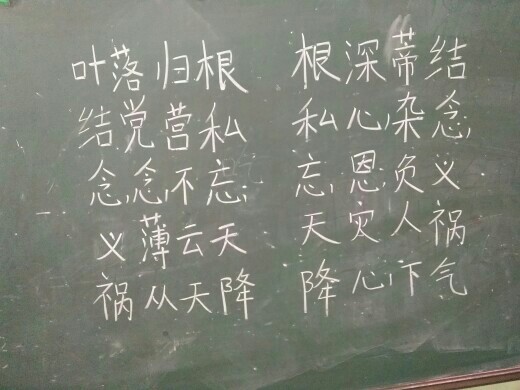 叶落归根 根深蒂结
结党营私 私心杂念
念念不忘 忘恩负义
义薄云天 天灾人祸
祸从天降 降心下气